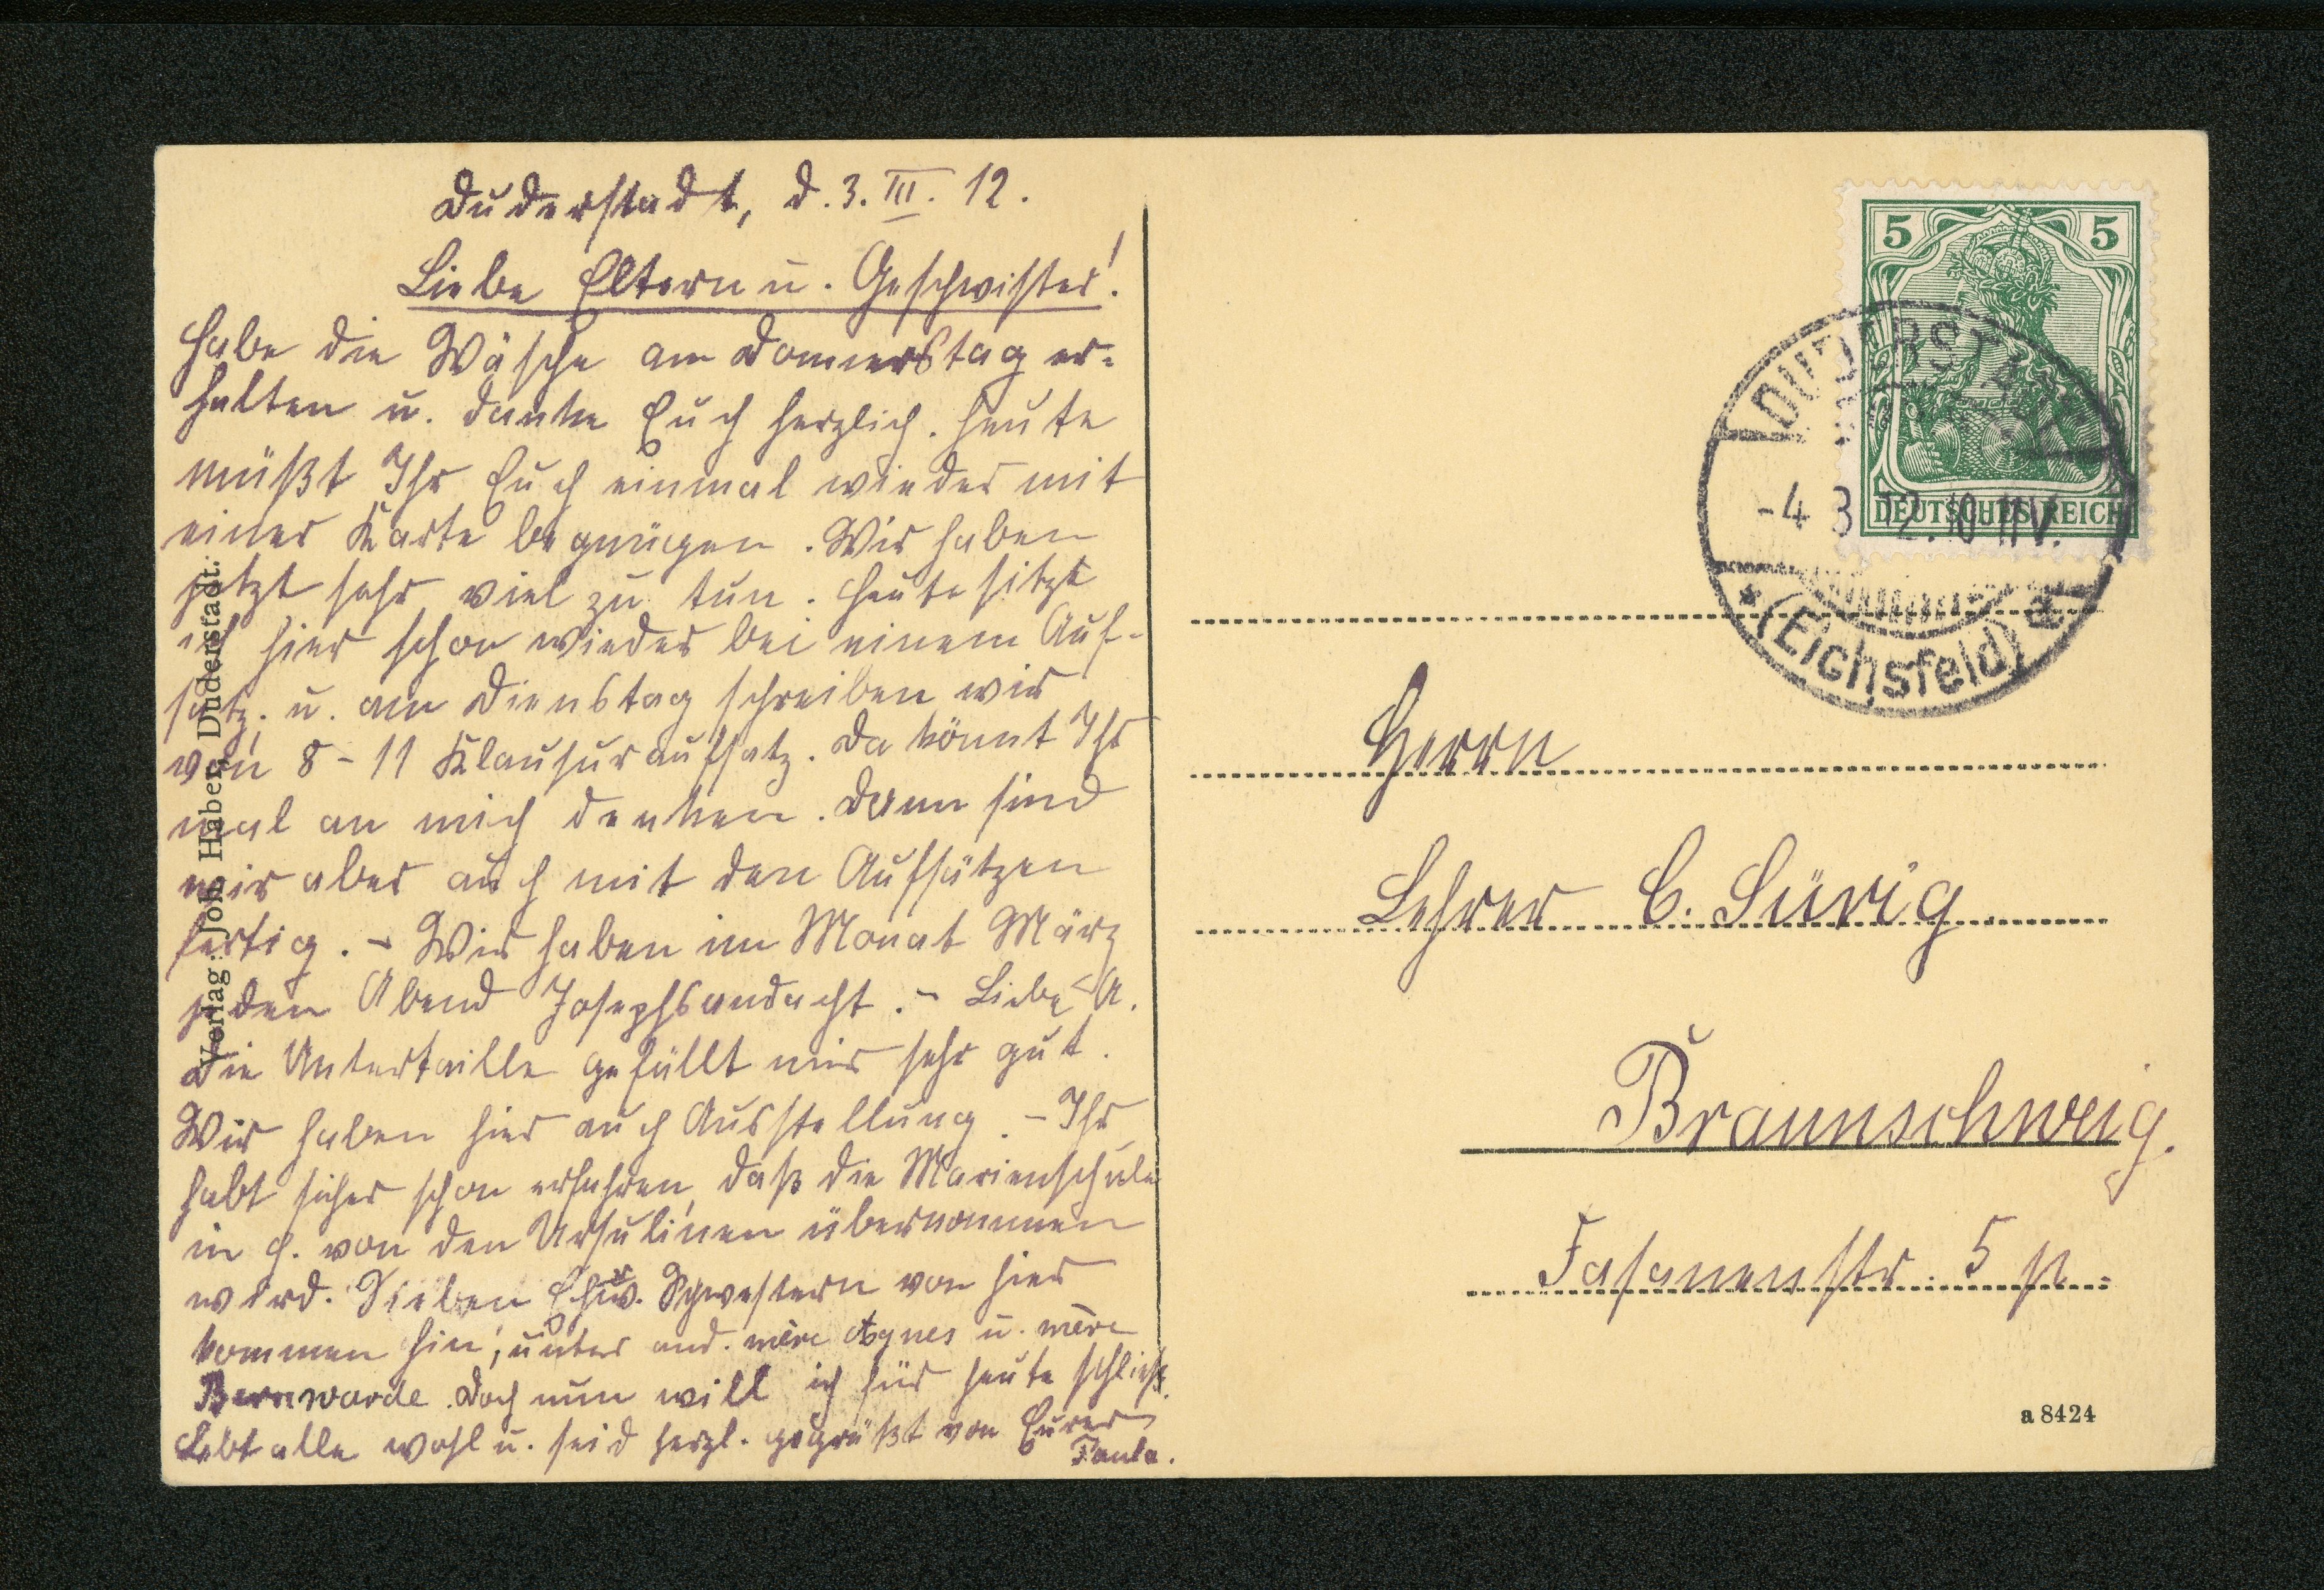 Duderstadt, d. 3. III. 12.
Liebe Eltern u. Geschwister!
Habe die Wäsche am Donnerstag er-
halten u. danke Euch herzlich. Heute
müßt Ihr Euch einmal wieder mit
einer Karte begnügen. Wir haben
jetzt sehr viel zu tun. Heute sitze
ich hier schon wieder bei einem Auf-
satz. u. am Dienstag schreiben wir
von 8 - 11 Klausuraufsatz. Da könnt Ihr
mal an mich denken. Dann sind
wir aber auch mit den Aufsätzen
fertig. - Wir haben im Monat März
jeden Abend Josephsandacht. - Liebe A.
Die Untertaille gefällt mir sehr gut.
Wir haben hier auch Ausstellung. - Ihr
habt sicher schon erfahren, daß die Marienschule
in H. von den Ursulinen übernommen
wird. Sieben Ehrw. Schwestern von hier
kommen hin, unter and. mère Agnes u. mère
Bernwarde. Doch nun will ich für heute schließ.
Lebt alle wohl u. seid herzl. gegrüßt von Eurer
Paula.
Verlag: Joh. Haben, Duderstadt.
5 5
DEUTSCHES REICH
DUDERSTADT
-4 3 12. 10-11V.
* (Eichsfeld) a
Herrn
Lehrer C. Sürig
Braunschweig.
Fasanenstr. 5 p.
a 8424